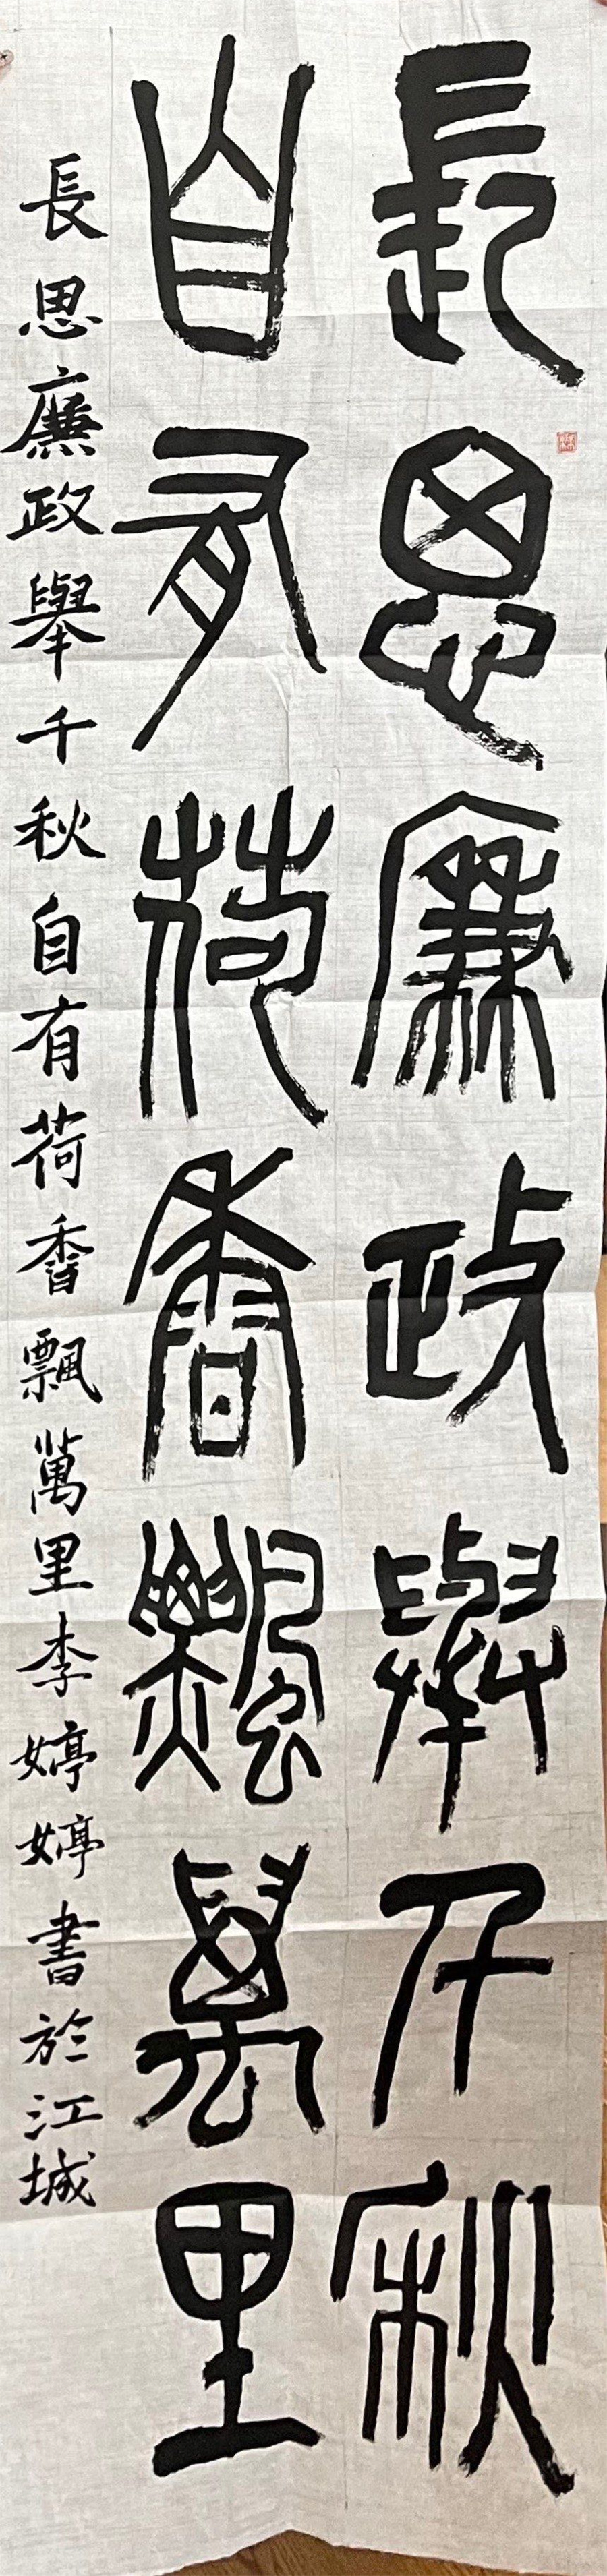 長思廉政舉千秋
自有荷香飄萬里
長思廉政舉千秋自有荷香飄萬里李婷婷書於江城